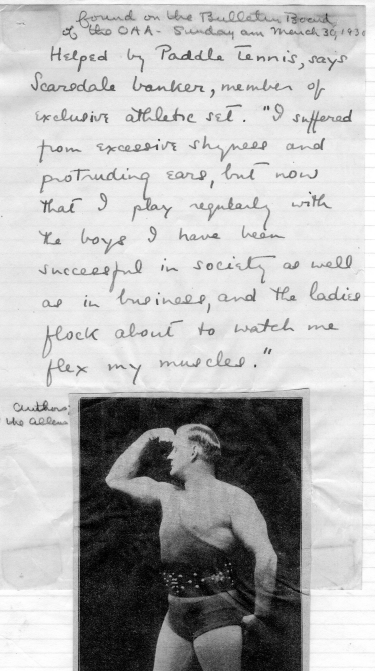 found on the Bulletin Board
of the OAA - Sunday am March 30, 193
Helped by Paddle Tennis, says
Scarsdale banker, member of
exclusive athletic set. "I suffered
from excessive shyness and
protruding ears, but now
that I play regularly with
the boys I have been
successful in society as well
as in business, and the ladies
flock about to watch me
flex my muscles."
Authors;
the Allens